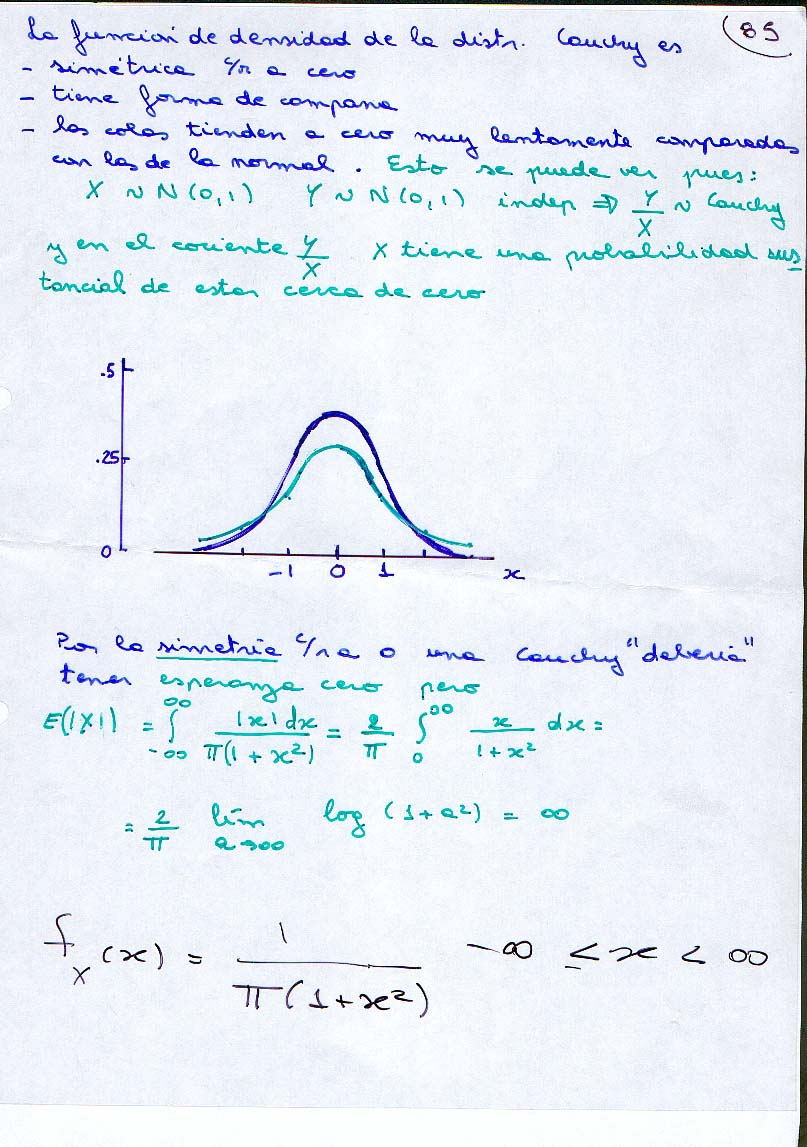 85
La función de densidad de la distr. Cauchy es
- simétrica c/r a cero
- tiene forma de campana
- las colas tienden a cero muy lentamente comparadas
con las de la normal. Esto se puede ver pues:
X ~ N(0,1) Y ~ N(0,1) indep ⇒ Y/X ~ Cauchy
y en el cociente Y/X X tiene una probabilidad sus
tancial de estar cerca de cero
.5
.25
0
-1 0 1 x
Por la simetría c/r a 0 una Cauchy "debería"
tener esperanza cero pero
E(|X|) = ∫_{-∞}^{∞} |x| dx / π(1 + x²) = 2/π ∫_0^∞ x / 1 + x² dx =
= 2/π lím_{a→∞} log (1 + a²) = ∞
f_X(x) = 1 / π(1 + x²) -∞ ≤ x < ∞